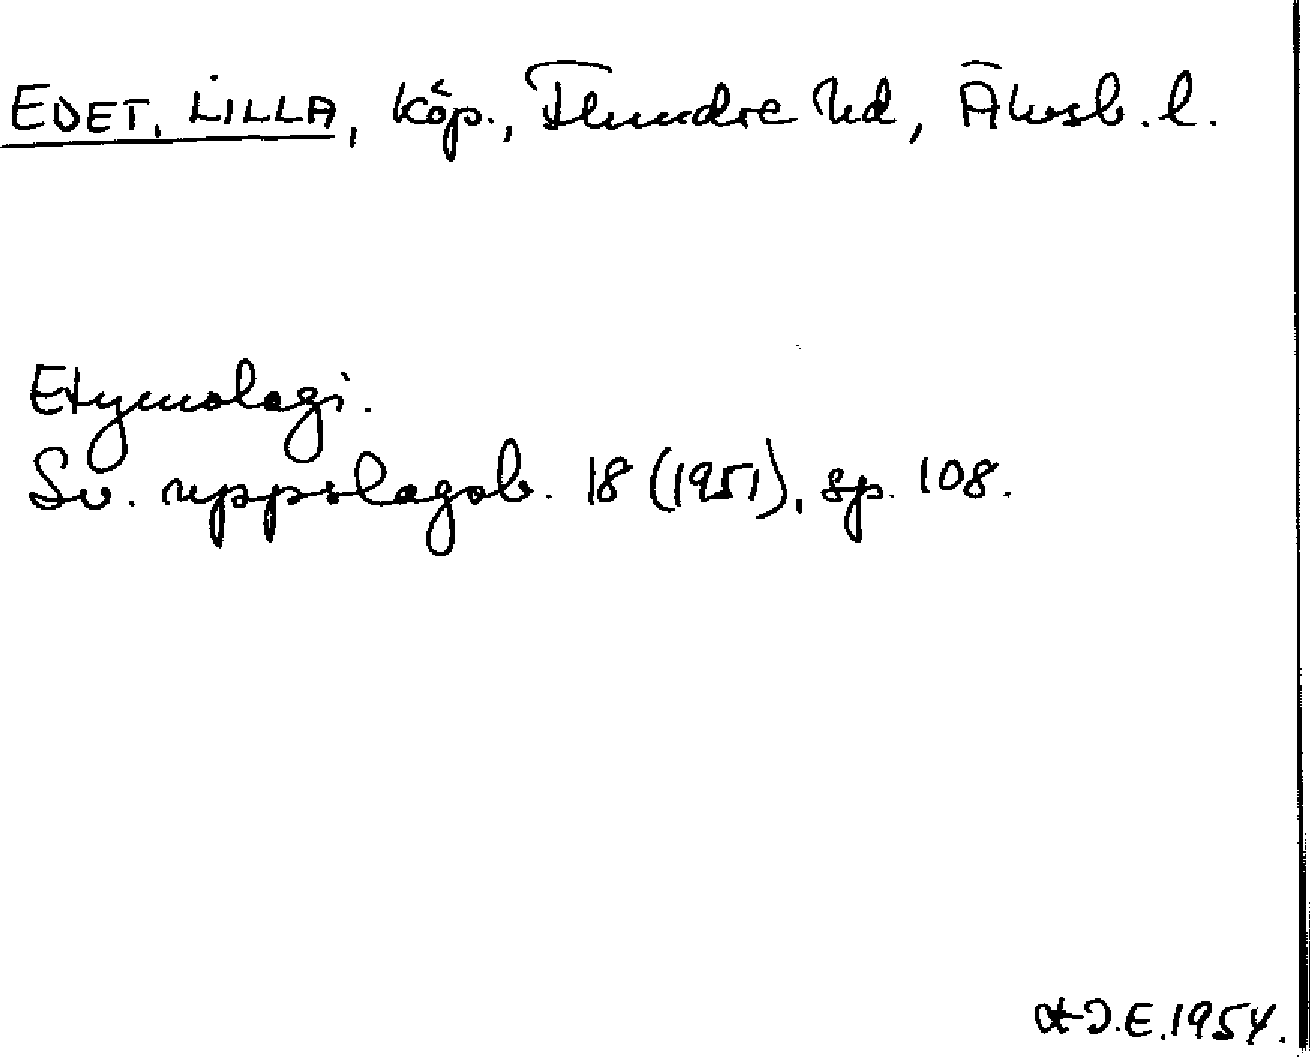 EDET, LILLA, köp., Flundre hd, Älvsb. l.
Etymologi.
Sv. uppslagsb. 18 (1951), sp. 108.
E. 1954.